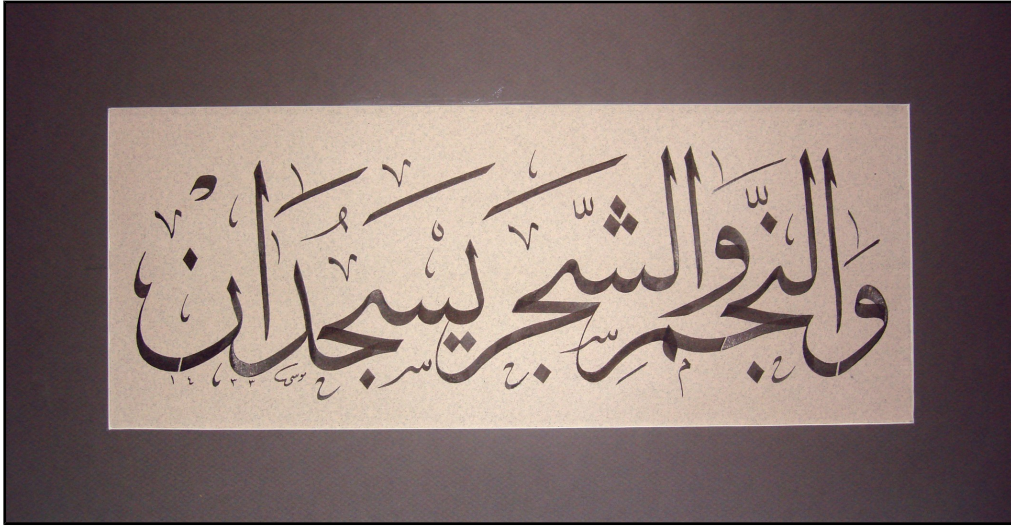 والنجم والشجر يسجدان
موسى ١٤٣٣